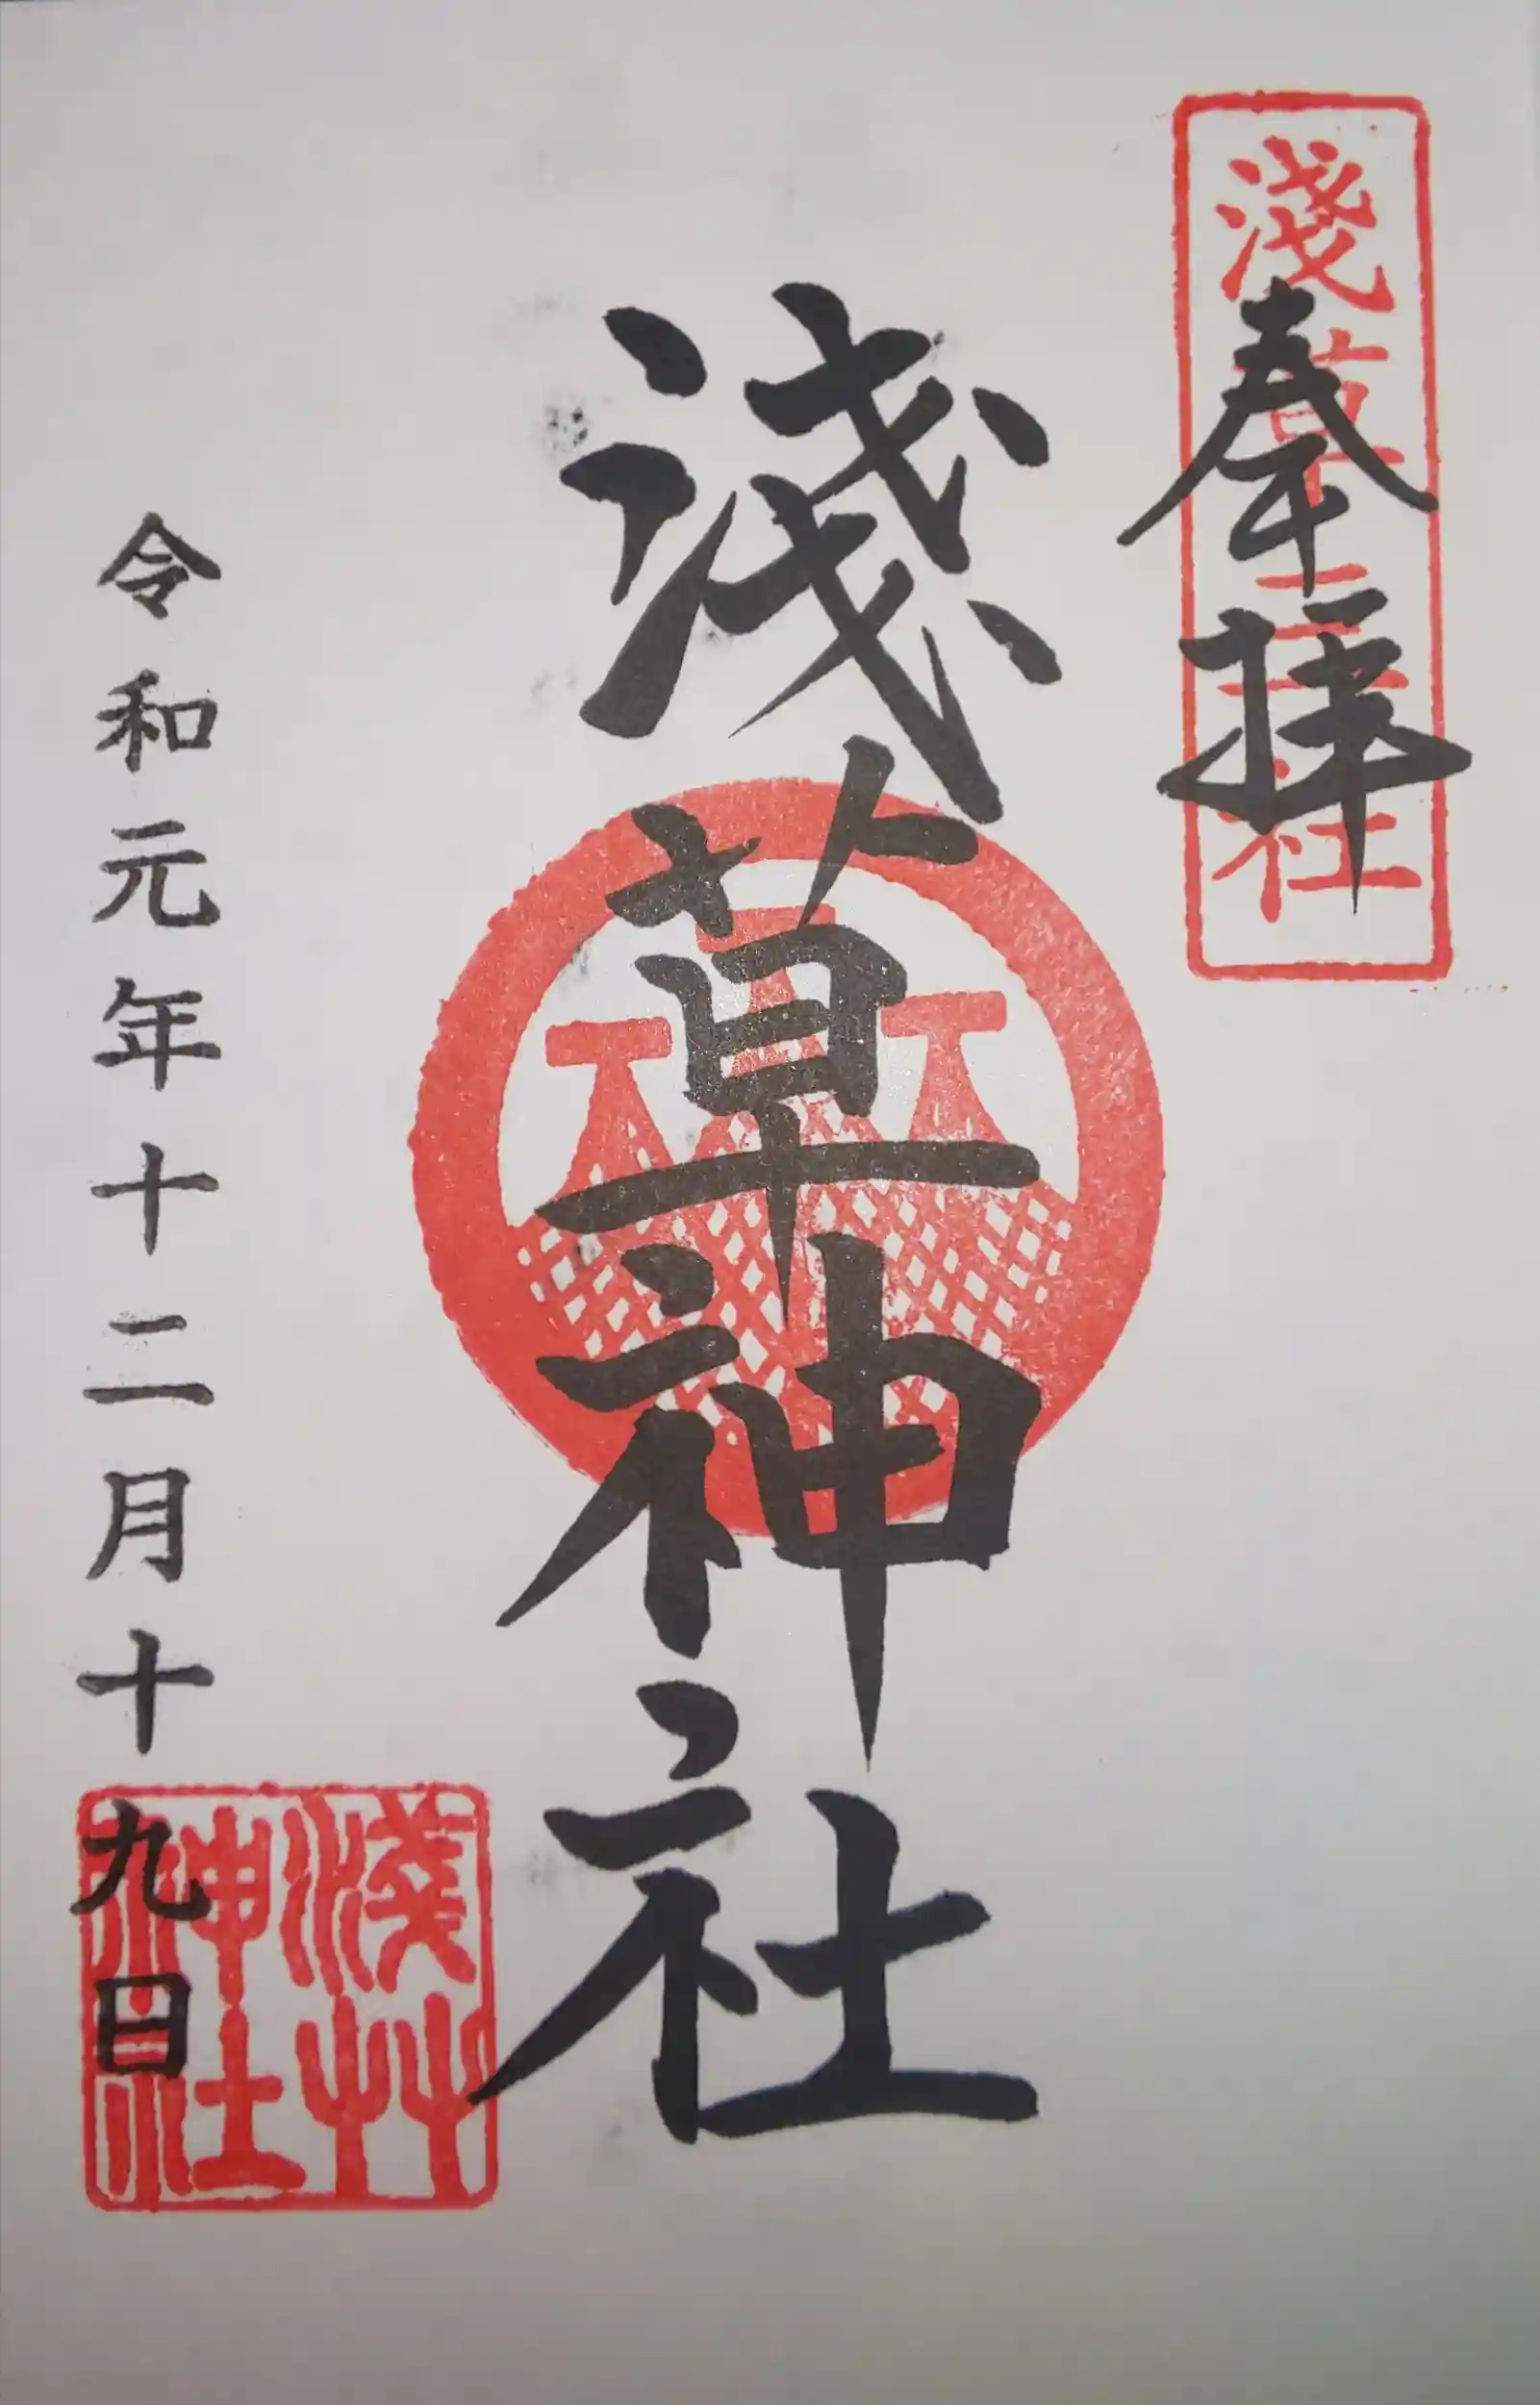 淺草三社
奉拝
浅草神社
令和元年十二月十九日
淺艸神社